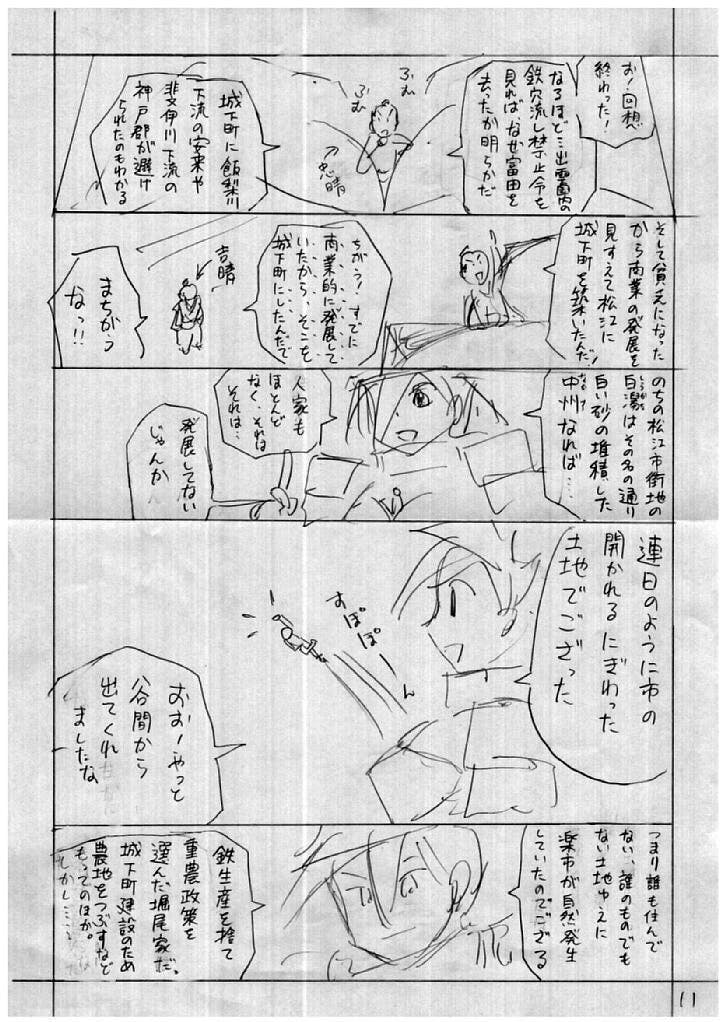 お！回想
終わった！
なるほど…出雲国内の
鉄穴流し禁止令を
見れば、なぜ富田を
去ったか明らかだ
ふむ
ふむ
忠晴
城下町に飯梨川
下流の安来や
斐伊川下流の
神戸郡が避け
られたのもわかる
そして貧乏になった
から商業の発展を
見すえて松江に
城下町を築いたんだ！
ちがう！すでに
商業的に発展して
いたから、そこを
城下町にしたんだで
吉晴
まちがう
なっ!!
のちの松江市街地の
白潟はその名の通り
白い砂の堆積した
中州なれば…
人家も
ほとんど
なく、それは
それは…
発展してない
じゃんか
連日のように市の
開かれるにぎわった
土地でござった
すぽぽーん
おお！やっと
谷間から
出てくれ
ましたな
つまり誰も住んで
ない、誰のものでも
ない土地ゆえに
楽市が自然発生
していたのでござる
鉄生産を捨て
重農政策を
選んだ堀尾家だ。
城下町建設のため
農地をつぶすなど
もってのほか。
しかし…
11